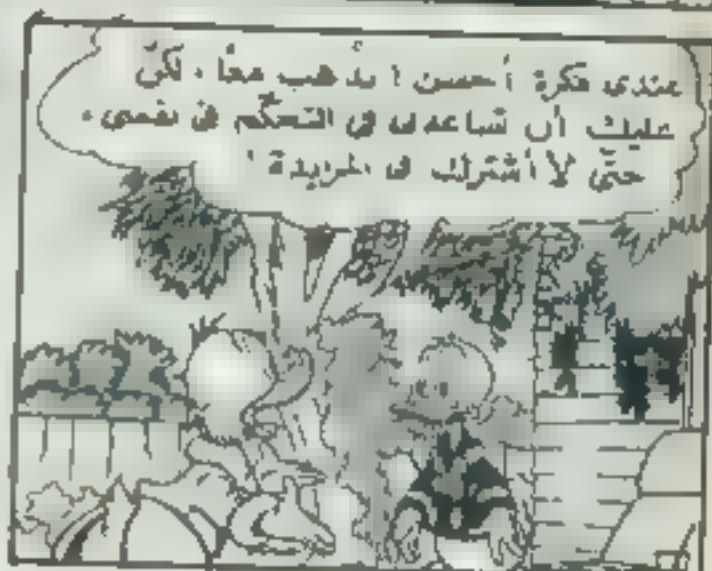 عندى فكرة أحسن ! نذهب معاً ، لكن
عليك أن تساعدنى فى التحكّم فى نفسى ،
حتّى لا أشترك فى المزيدة !